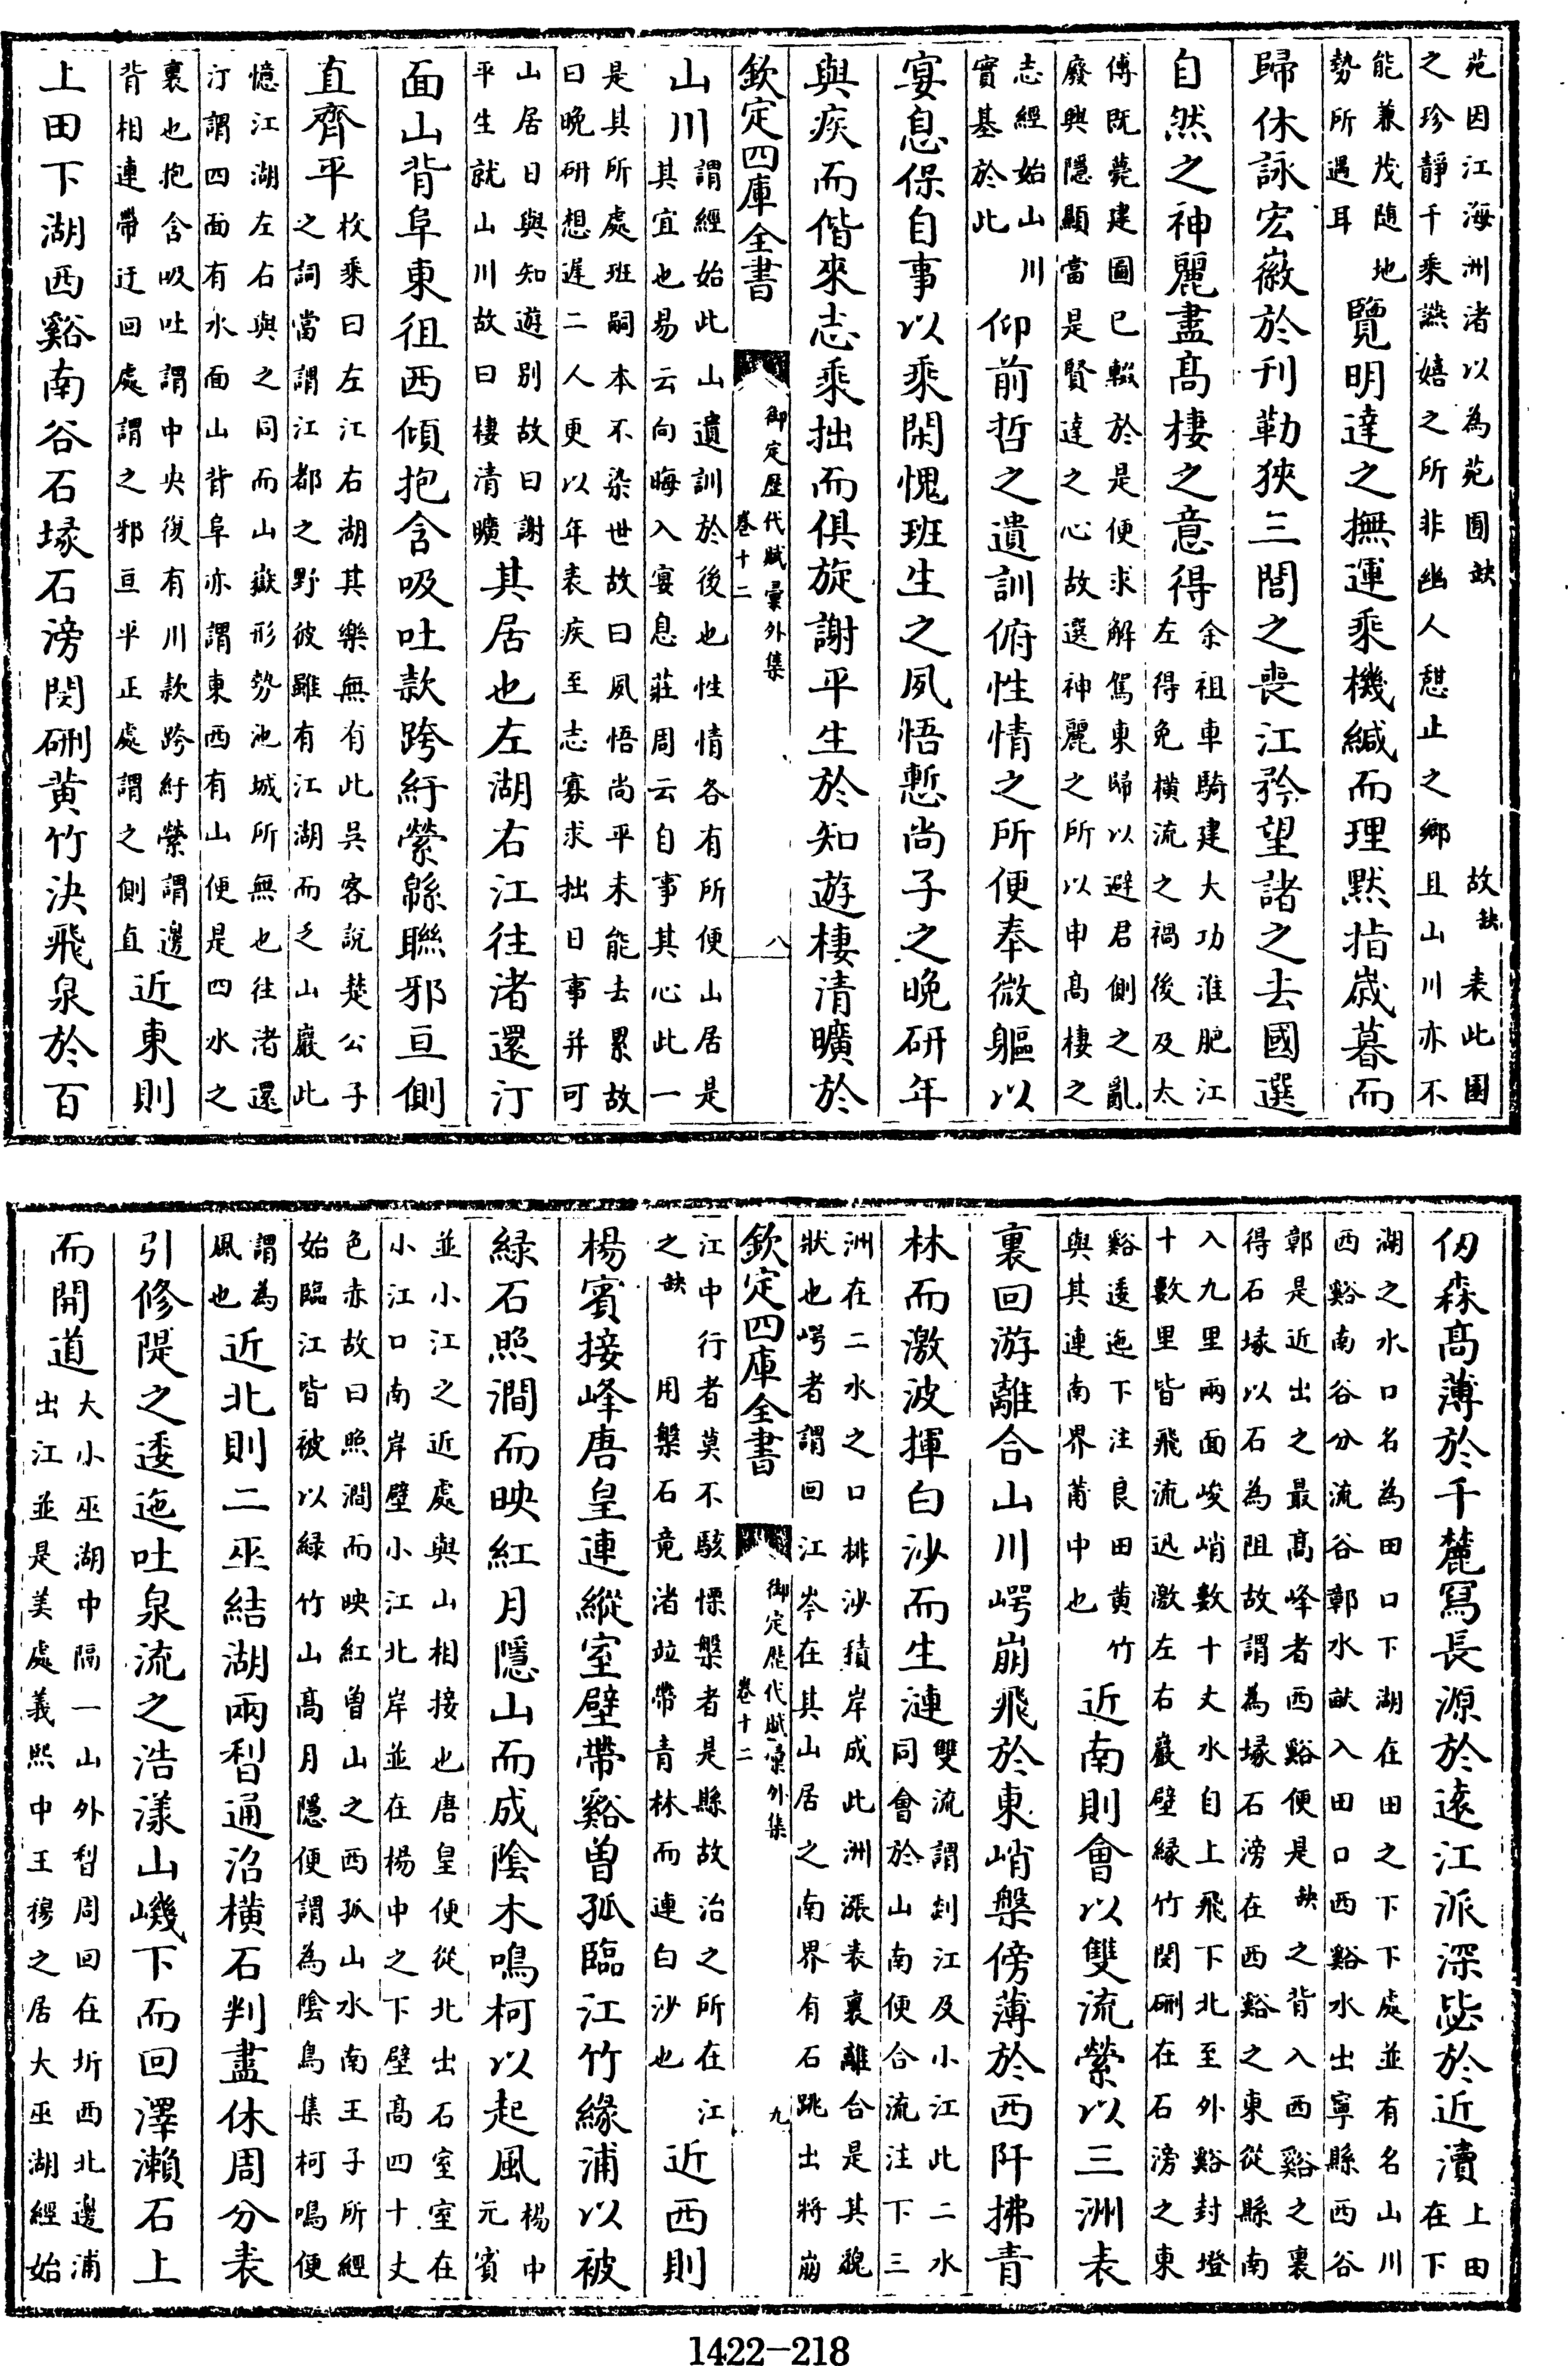 苑因江海洲渚以為苑囿缺　故缺　表此園
之珍靜千乘讌嬉之所非幽人憩止之鄉且山川亦不
能兼茂随地
勢所遇耳
覽明達之撫運乘機緘而理默指歲暮而
歸休詠宏徽於刊勒狹三閭之喪江矜望諸之去國選
自然之神麗盡髙棲之意得
余祖車騎建大功淮肥江
左得免横流之禍後及太
傅既薨建圖已輟於是便求解駕東歸以避君側之亂
廢興隱顯當是賢達之心故選神麗之所以申髙棲之
志經始山川
實基於此
仰前哲之遺訓俯性情之所便奉微軀以
宴息保自事以乘閑愧班生之夙悟慙尚子之晚研年
與疾而偕來志乘拙而俱旋謝平生於知遊棲清曠於
欽定四庫全書
御定歷代賦彙外集
卷十二
八
山川
謂經始此山遺訓於後也性情各有所便山居是
其宜也易云向晦入宴息莊周云自事其心此一
是其所處班嗣本不染世故曰夙悟尚平未能去累故
曰晚研想遲二人更以年表疾至志寡求拙曰事并可
山居曰與知遊别故曰謝
平生就山川故曰棲清曠
其居也左湖右江往渚還汀
面山背阜東徂西傾抱含吸吐款跨紆縈緜聯邪亘側
直齊平
枚乘曰左江右湖其樂無有此吳客說楚公子
之詞當謂江都之野彼雖有江湖而乏山巖此
憶江湖左右與之同而山嶽形勢池城所無也往渚還
汀謂四面有水面山背阜亦謂東西有山便是四水之
裏也抱含吸吐謂中央復有川款跨紆縈謂邊
背相連帶迂回處謂之邪亘平正處謂之側直
近東則
上田下湖西谿南谷石塚石滂閔硎黄竹決飛泉於百
仞森髙薄於千麓寫長源於逺江派深毖於近瀆
上田
在下
湖之水口名為田口下湖在田之下下處並有名山川
西谿南谷分流谷鄣水畎入田口西谿水出寧縣西谷
鄣是近出之最髙峰者西谿便是缺之背入西谿之裏
得石塚以石為阻故謂為塚石滂在西谿之東從縣南
入九里兩面峻峭數十丈水自上飛下北至外谿封墱
十數里皆飛流迅激左右巖壁緣竹閔硎在石滂之東
谿逶迤下注良田黄竹
與其連南界莆中也
近南則會以雙流縈以三洲表
裏回游離合山川崿崩飛於東峭槃傍薄於西阡拂青
林而激波揮白沙而生漣
雙流謂剡江及小江此二水
同會於山南便合流注下三
洲在二水之口排沙積岸成此洲漲表裏離合是其貌
狀也崿者謂回江岑在其山居之南界有石跳出將崩
欽定四庫全書
御定歷代賦彙外集
卷十二
九
江中行者莫不駭慄槃者是縣故治之所在江
之缺　用槃石竟渚竝帶青林而連白沙也
近西則
楊賓接峰唐皇連縱室壁帶谿曾孤臨江竹緣浦以被
緑石照澗而映紅月隱山而成陰木鳴柯以起風
楊中
元賓
並小江之近處與山相接也唐皇便從北出石室室在
小江口南岸壁小江北岸並在楊中之下壁髙四十丈
色赤故曰照澗而映紅曽山之西孤山水南王子所經
始臨江皆被以緑竹山髙月隱便謂為陰鳥集柯鳴便
謂為
風也
近北則二巫結湖兩㓡通沼横石判盡休周分表
引修隄之逶迤吐泉流之浩漾山㠑下而回澤瀨石上
而開道
大小巫湖中隔一山外㓡周回在圻西北邊浦
出江並是美處義熙中王穆之居大巫湖經始
1422-218